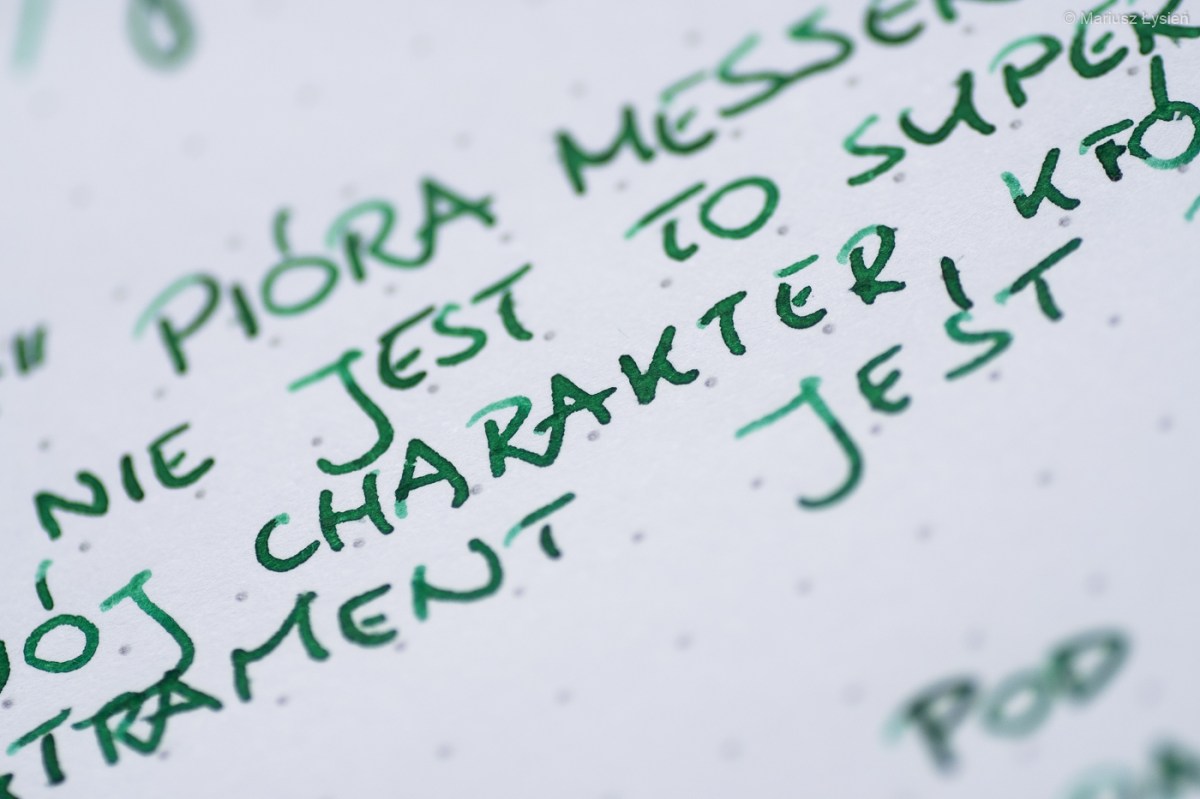 © Mariusz Łysień
" PIÓRA MESSE
NIE JEST TO SUPER
ÓJ CHARAKTER I KTÓ
TRAMENT JEST
POD